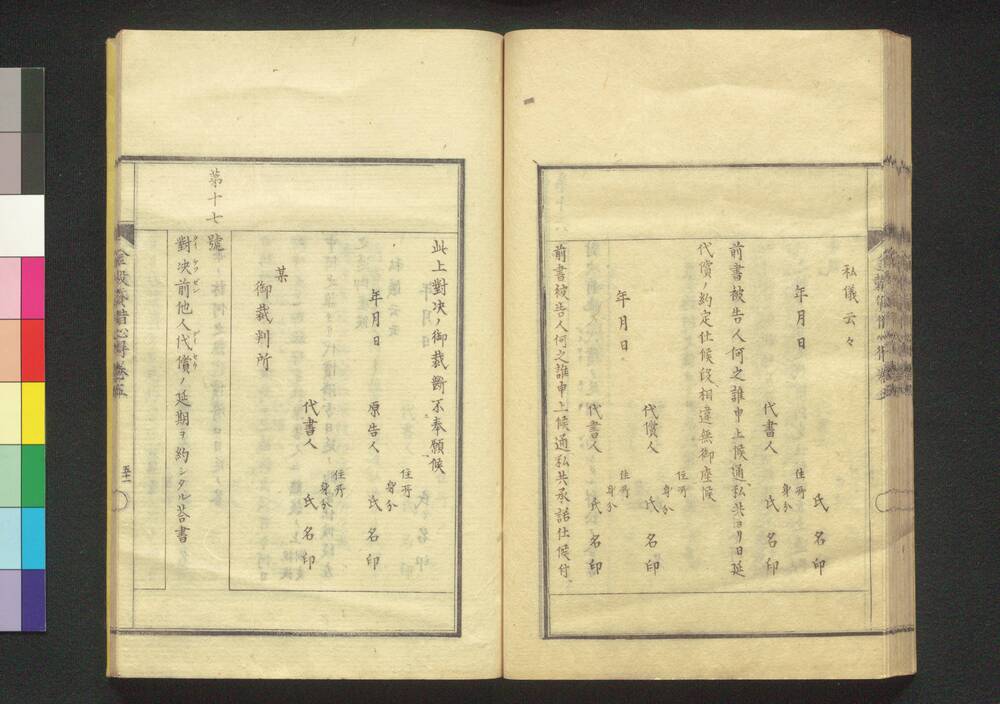 私儀云々
年月日
氏名印
代書人
住所
身分
氏名印
前書被告人何之誰申上候通私共ヨリ日延
代償ノ約定仕候段相違無御座候
代償人
住所
身分
氏名印
年月日
代書人
住所
身分
氏名印
前書被告人何之誰申上候通私共承諾仕候付
此上對决ノ御裁斷不奉願候
住所
身分
年月日
原告人
氏名印
住所
身分
代書人
氏名印
某
御裁判所
第十七號
對决前他人代償ノ延期ヲ約シタル荅書
タイ ケツ ゼン